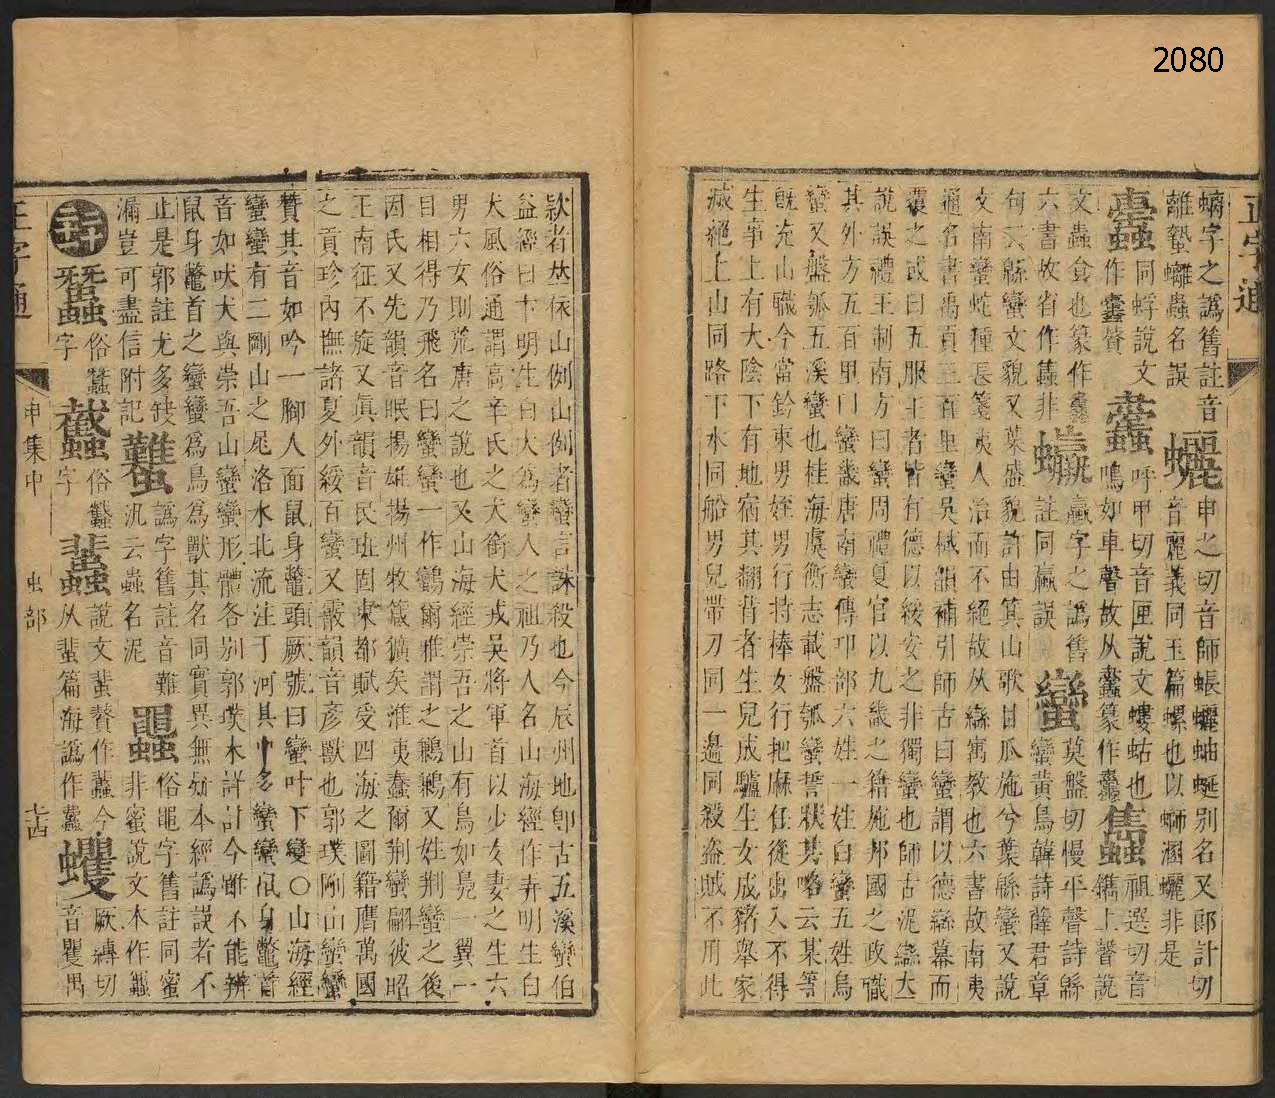 2080
正字通
螭字之譌舊註音
離蟄𧕯蟲名誤
蠷申之切音師蛝𧕯蚰蜒別名又郞計切
音麗義同玉篇螺也以螄溷𧕯非是
同蜉說文
作
呼甲切音匣說文螻蛄也
祖選切音
鳴如車聲故从
篆作
鐫上聲說
文蟲食也篆作
六書故省作
非
蠃字之譌舊
註同蠃誤
蠻
莫盤切慢平聲詩緜
蠻黃鳥韓詩薛君章
句云緜蠻文貌又葉盛貌許由箕山歌甘瓜施兮葉緜蠻又說
文南蠻蛇種長箋夷人治而不絕故从䜌寓教也六書故南夷
通名書禹貢三百里蠻吳棫韻補引師古曰蠻謂以德緜幕而
覆之或曰五服王者皆有德以綏安之非獨蠻也師古泥䜌大
說誤禮王制南方曰蠻周禮夏官以九畿之籍施邦國之政職
其外方五百里曰蠻畿唐南蠻傳卭部六姓一姓白蠻五姓烏
蠻又盤瓠五溪蠻也桂海虞衡志載盤瓠蠻誓狀其略云某等
旣充山職今當鈐束男姪男行持棒女行把麻任從出入不得
生事上有大陰下有地宿其翻背者生兒成驢生女成豬舉家
滅絕上山同路下水同船男兒帶刀同一邊同殺盜賊不用此
款者並依山例山例者蠻言誅殺也今辰州地卽古五溪蠻伯
益經曰卞明生白犬爲蠻人之祖乃人名山海經作弄明生白
犬風俗通謂高辛氏之犬銜犬戎吳將軍首以少女妻之生六
男六女則荒唐之說也又山海經崇吾之山有鳥如鳧一翼一
目相得乃飛名曰蠻蠻一作鸓爾雅謂之鶼鶼又姓荆蠻之後
因氏又先韻音眠揚雄揚州牧箴獷矣淮夷蠢爾荆蠻翩彼昭
王南征不旋又眞韻音民班固東都賦受四海之圖籍膺萬國
之貢珍內撫諸夏外綏百蠻又霰韻音彥獸也郭璞剛山蠻蠻
贊其音如吟一脚人面鼠身鼈頭厥號曰蠻叶下變○山海經
蠻蠻有二剛山之尾洛水北流注于河其中多蠻蠻鼠身鼈首
音如吠犬與崇吾山蠻蠻形體各别郭璞木詳計今雖不能辨
鼠身鼈首之蠻蠻爲鳥爲獸其名同實異無疑本經譌誤者不
止是郭註尤多缺
漏豈可盡信附記
譌字舊註音難
汎云蟲名泥
俗黽字舊註同蜜
非蜜說文本作𧖅
俗蠶
字
俗蠿
字
蜚
說文蜚贅作蠹今
从蜚篇海譌作蠹
蠼
厥縛切
音矍禺
正字通
申集中
虫部
七十四